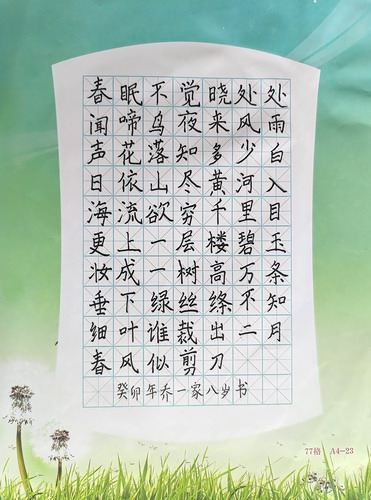 春眠不觉晓处处
闻啼鸟夜来风雨
声花落知多少白
日依山尽黄河入
海流欲穷千里目
更上一层楼碧玉
妆成一树高万条
垂下绿丝绦不知
细叶谁裁出二月
春风似剪刀
癸卯年乔一家八岁书
77格 A4-23